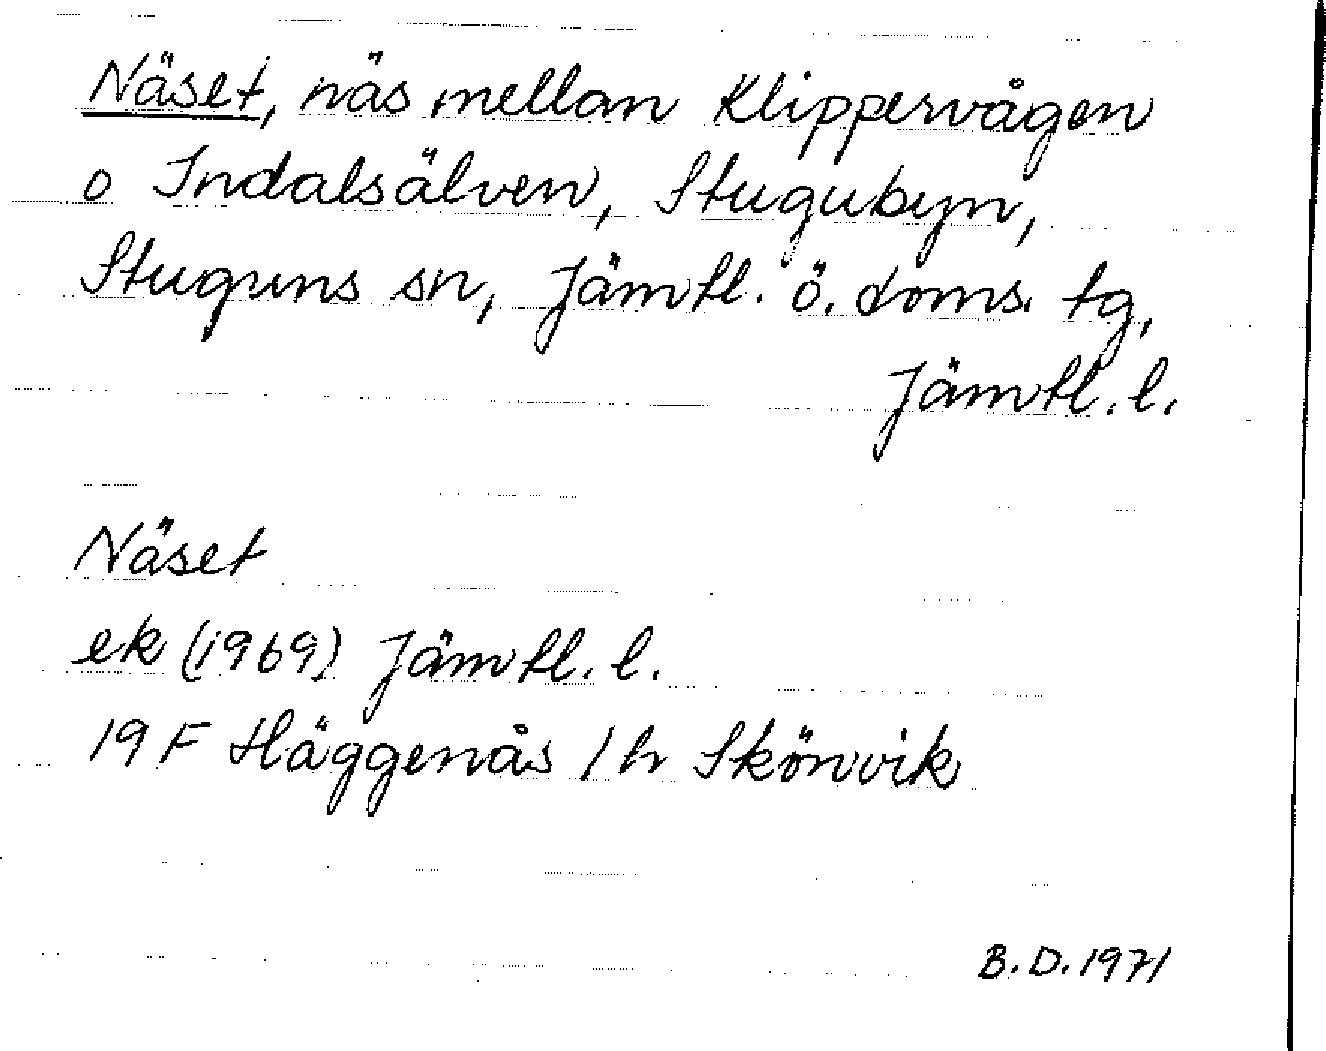 Näset, näs mellan Klippervågen
o Indalsälven, Stugubyn,
Stuguns sn, Jämtl. ö. doms. tg,
Jämtl. l.
Näset
ek (1969) Jämtl. l.
19 F Häggenås 1 h Skönvik
B. D. 1971